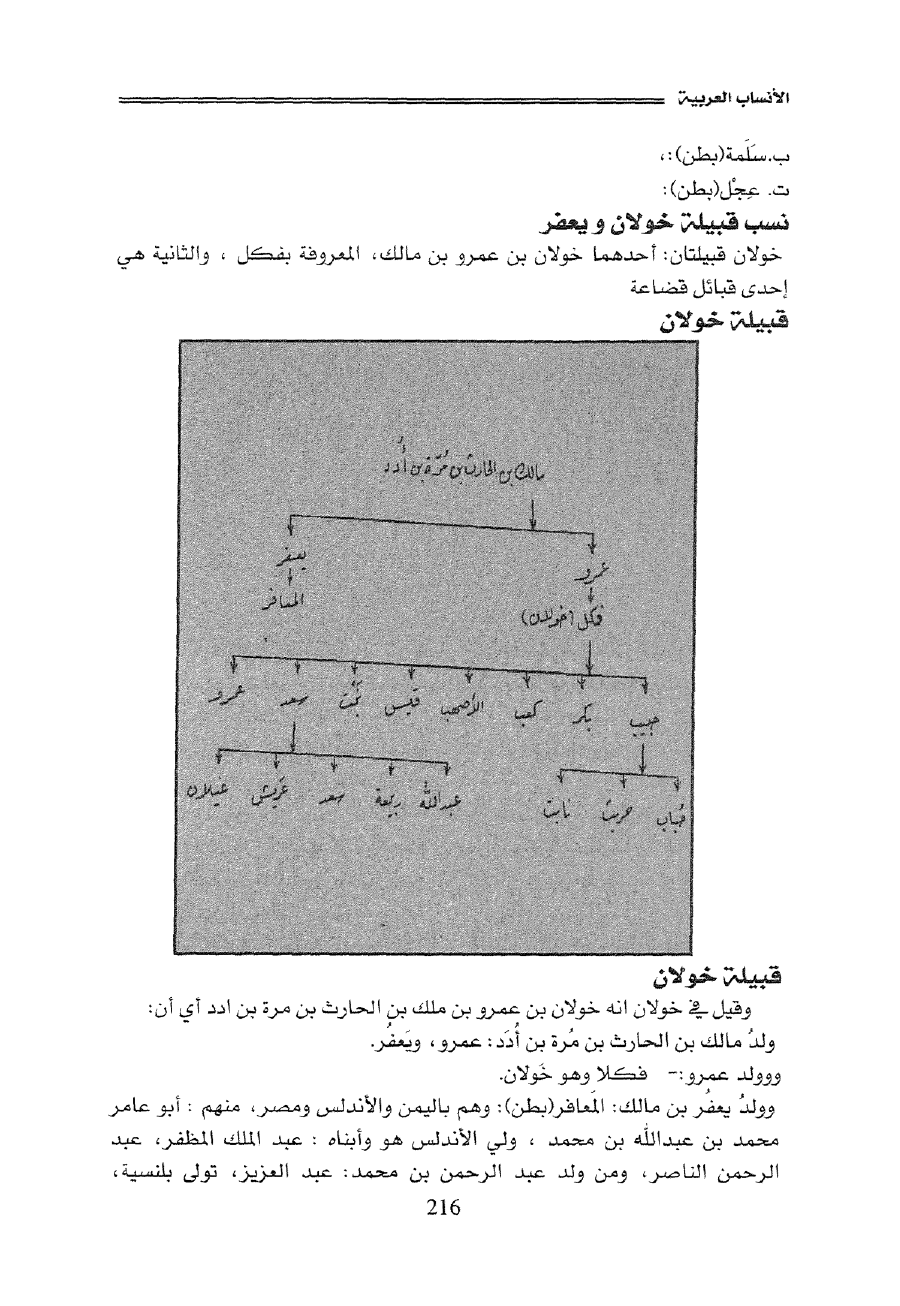 الأنساب العربية
ب.سَلَمة(بطن):،
ت. عِجْل(بطن):
نسب قبيلة خولان و يعفر
خولان قبيلتان: أحدهما خولان بن عمرو بن مالك، المعروفة بفكل ، والثانية هي
إحدى قبائل قضاعة
قبيلة خولان
مالك بن الحارث بن مُرّة بن أُدد
عمرو يعفر
فكل (خولان) المعافر
حبيب بكر كعب الأصهب قيس نَبْت سعد عمرو
نابت عبدالله ربيعة سعد غيلان
قبيلة خولان
وقيل في خولان انه خولان بن عمرو بن ملك بن الحارث بن مرة بن ادد آي أن:
ولدُ مالك بن الحارث بن مُرة بن أُدَد: عمرو، ويَعفُر.
وووولد عمرو:- فكلا وهو خَولان.
وولدُ يعفُر بن مالك: المَعافر(بطن): وهم باليمن والأندلس ومصر، منهم : أبو عامر
محمد بن عبدالله بن محمد ، ولي الأندلس هو وأبناه : عبد الملك المظفر، عبد
الرحمن الناصر، ومن ولد عبد الرحمن بن محمد: عبد العزيز، تولى بلنسية،
216